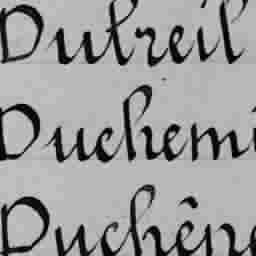 Dubreil
Duchemi
Duchêne